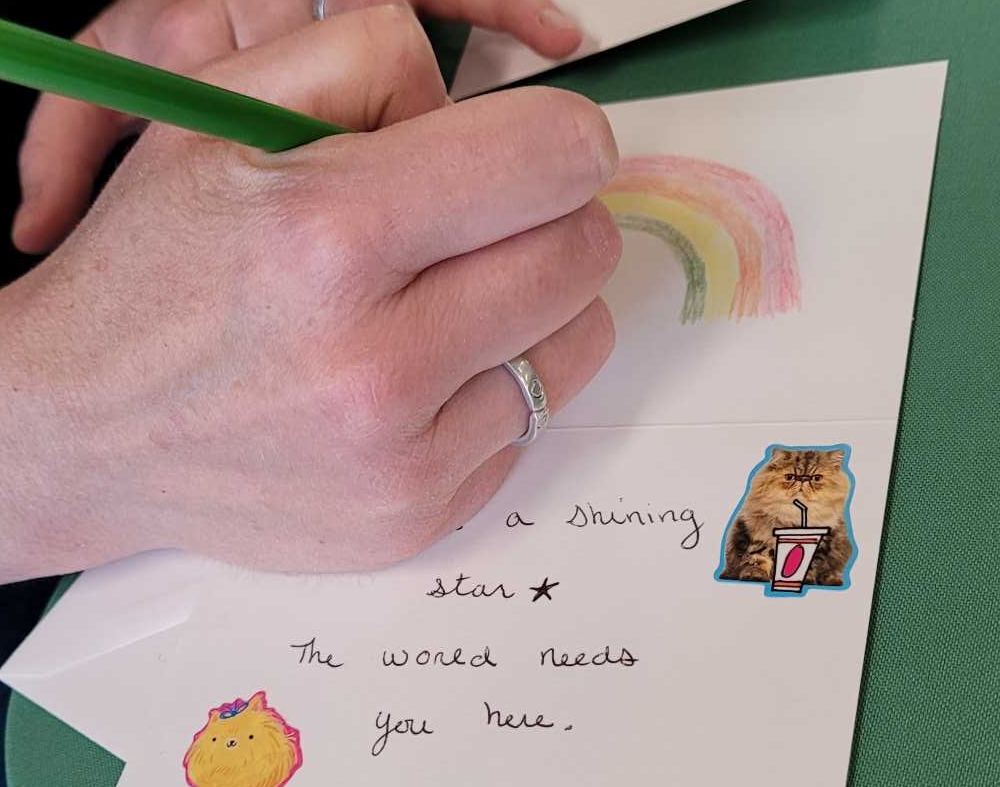 a shining
star ★
The world needs
you here.